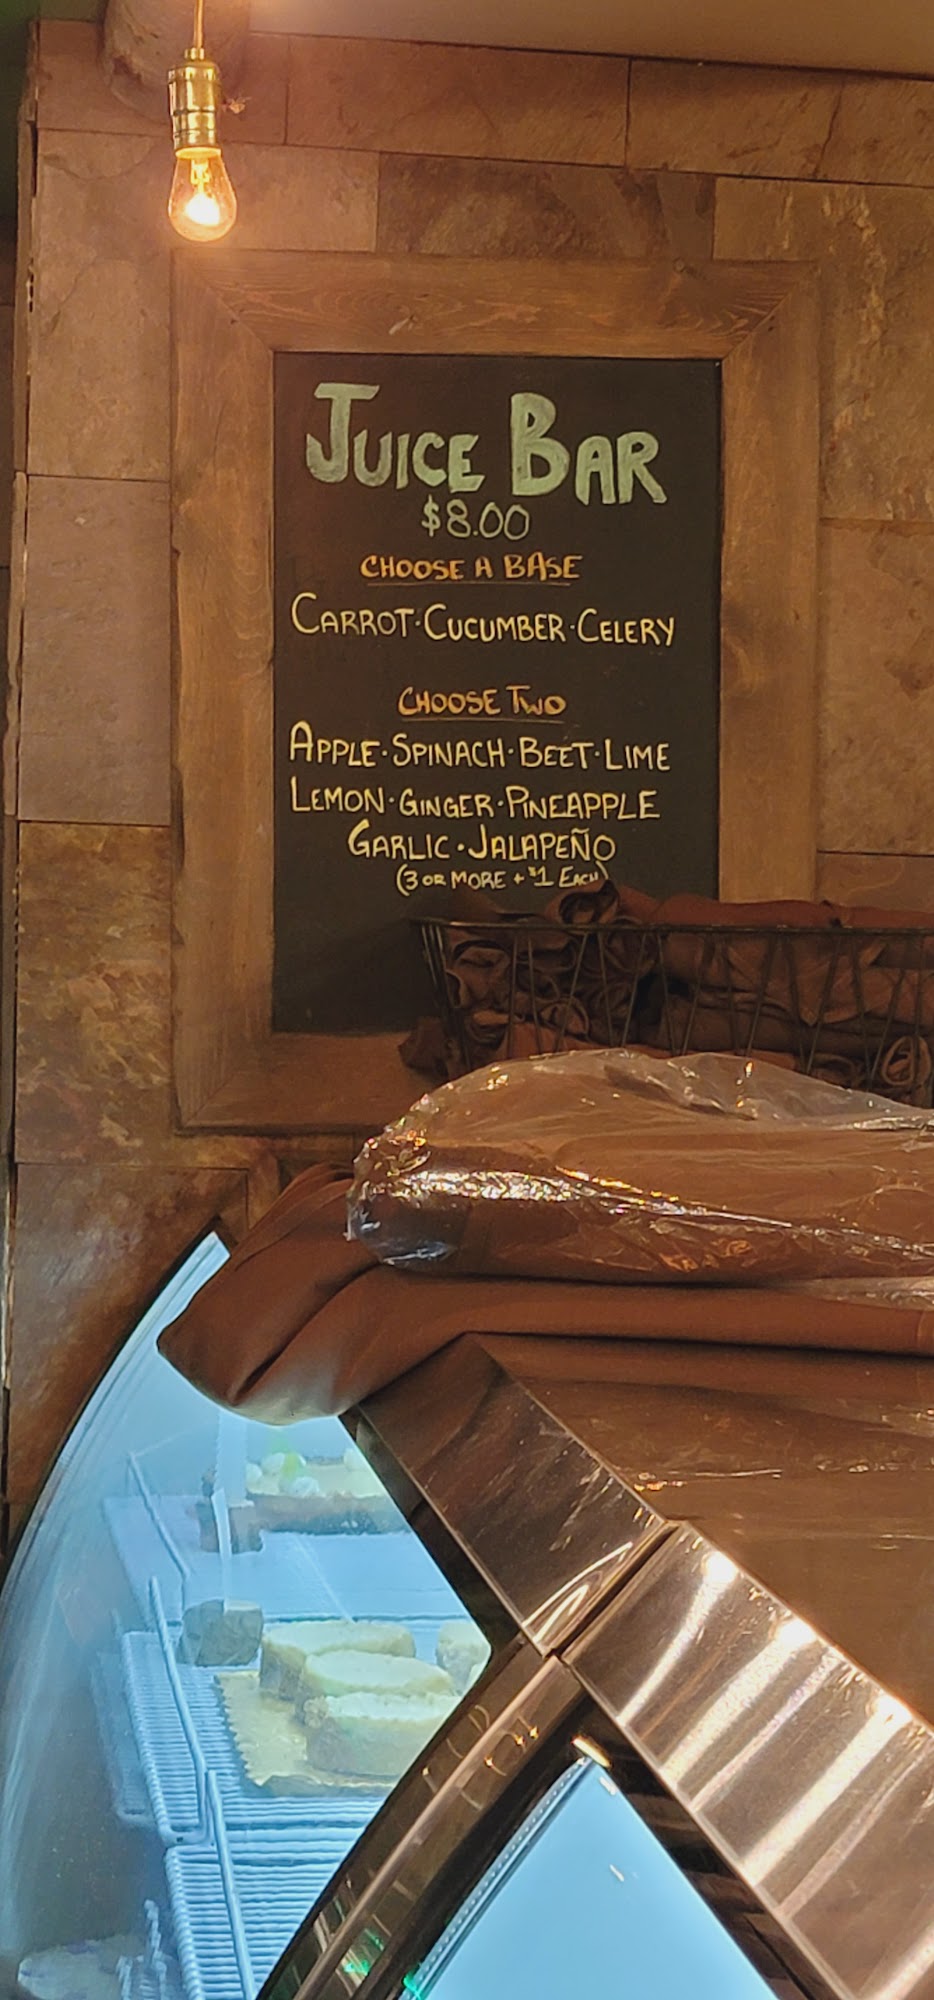 JUICE BAR
$8.00
CHOOSE A BASE
CARROT · CUCUMBER · CELERY
CHOOSE TWO
APPLE · SPINACH · BEET · LIME
LEMON · GINGER · PINEAPPLE
GARLIC · JALAPEÑO
(3 OR MORE + $1 EACH)